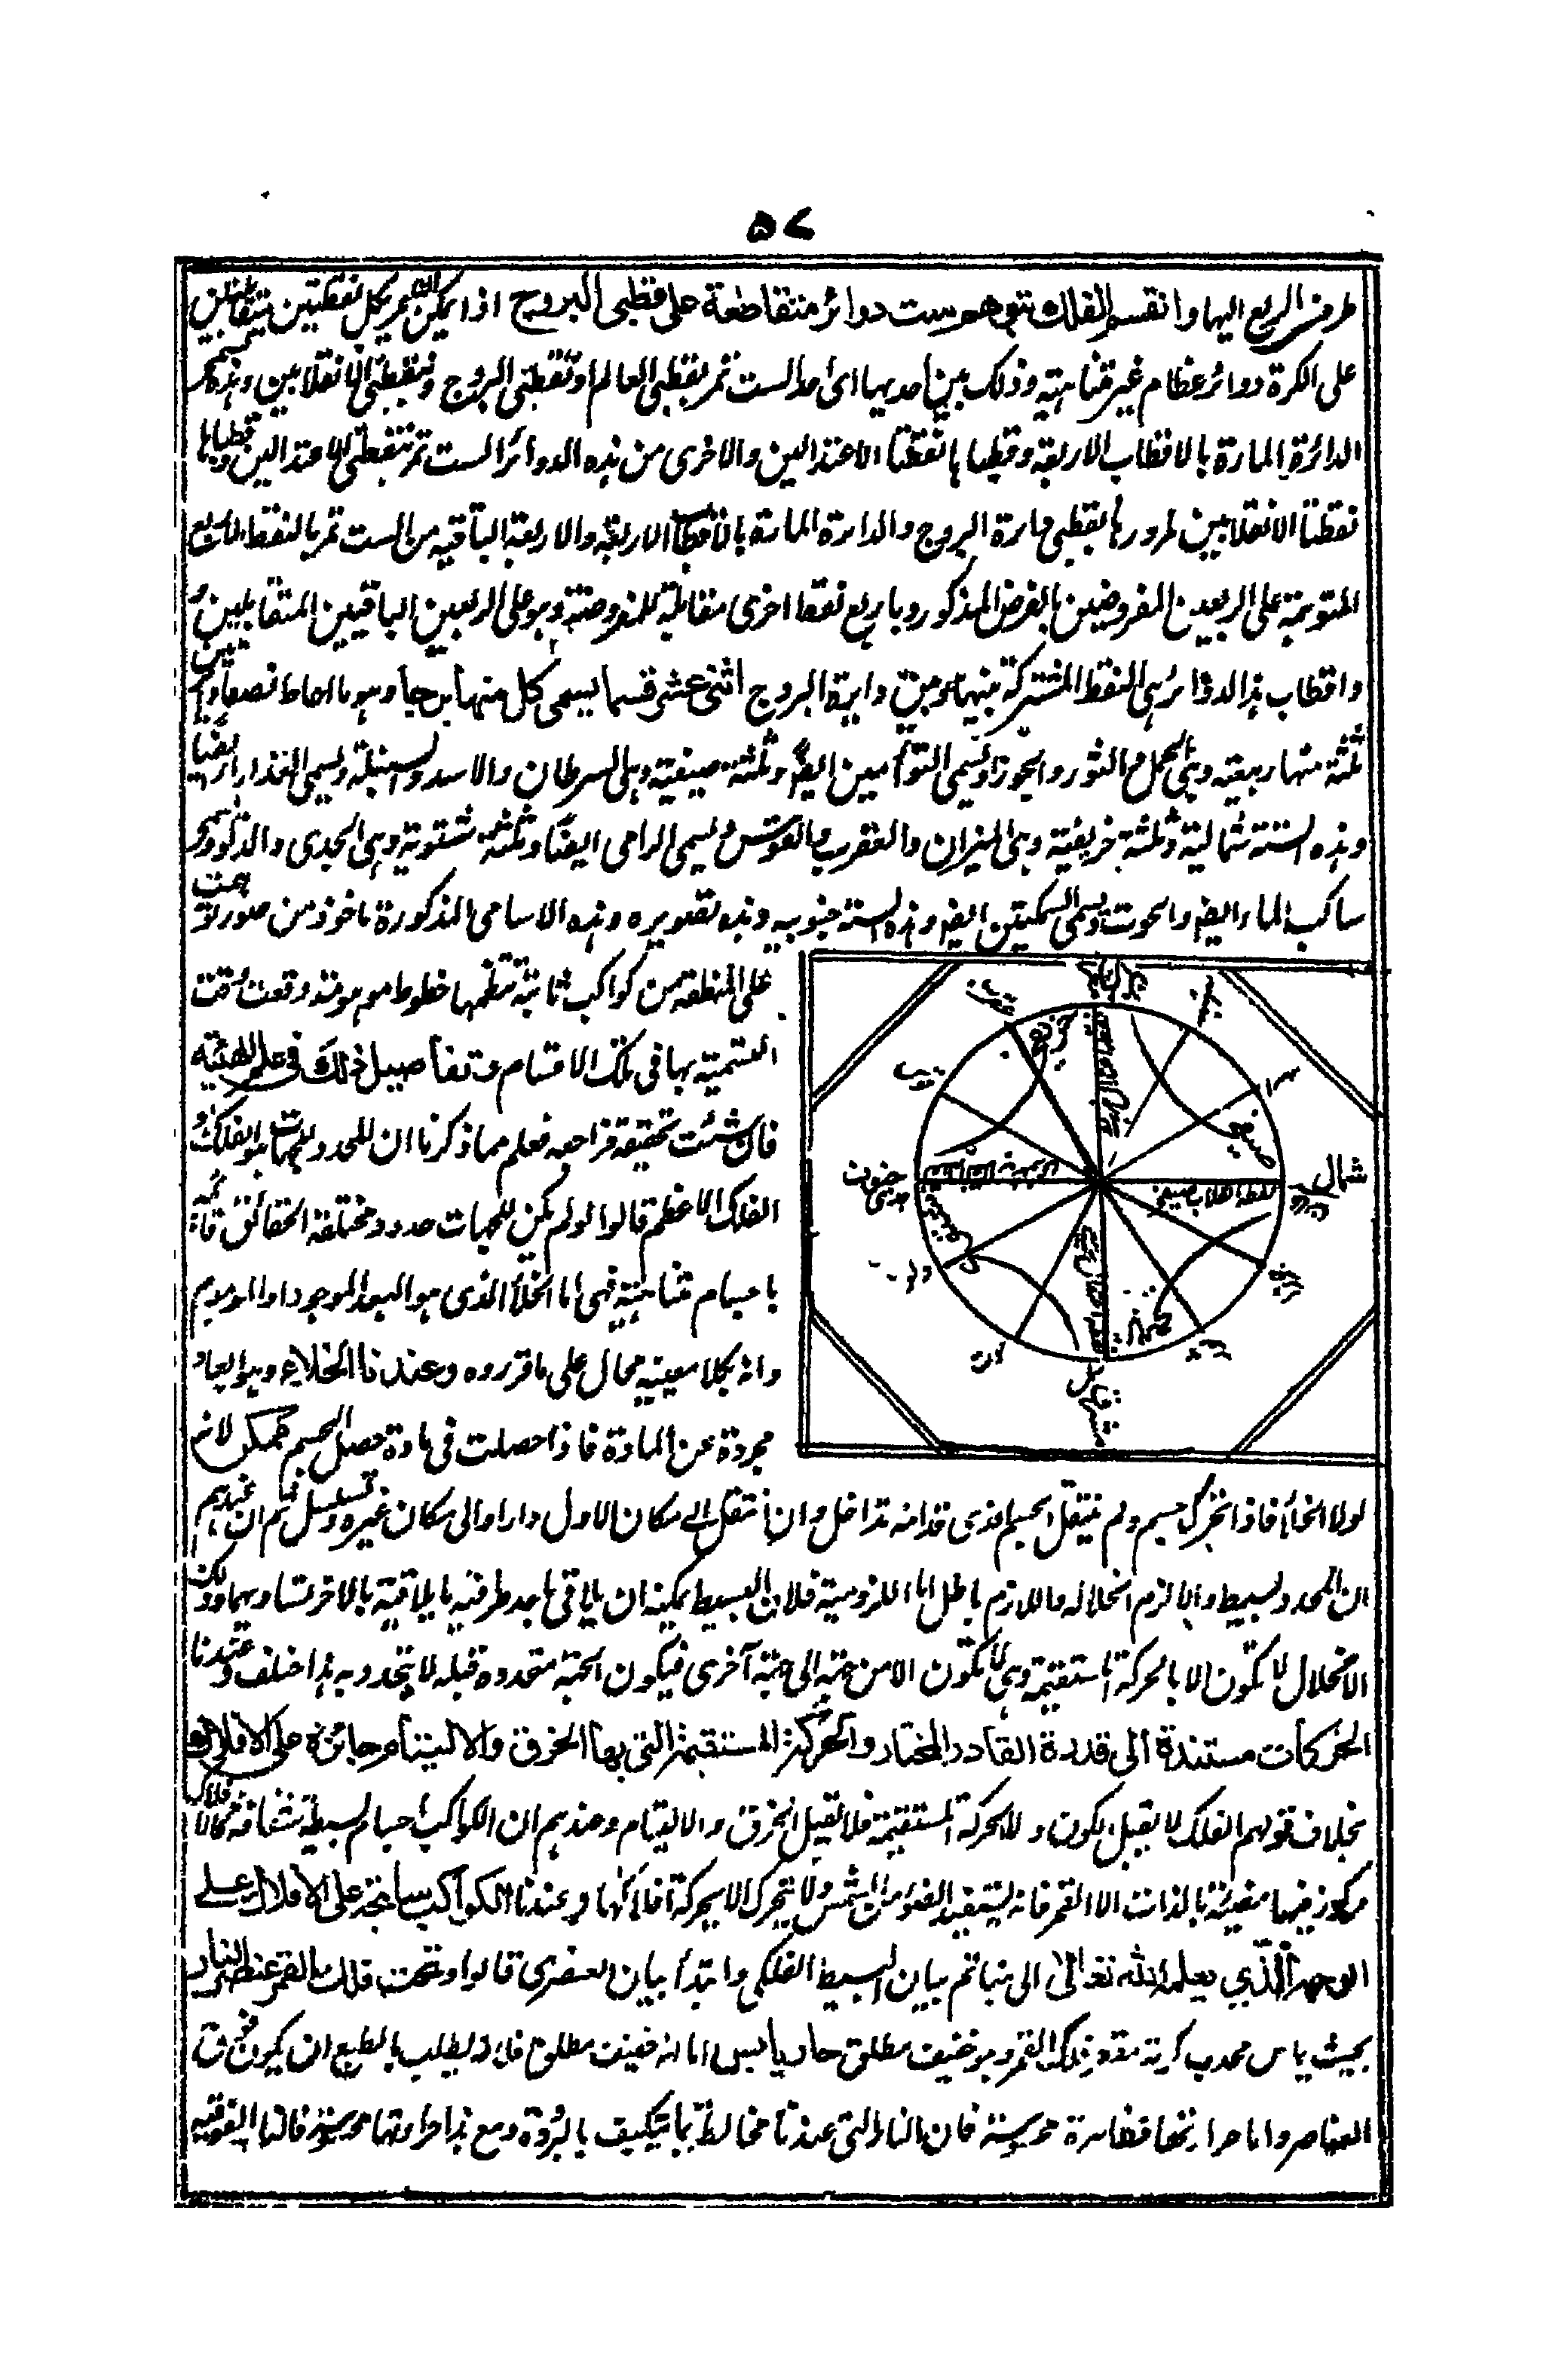 ٥٧
طرفي الربع اليها وانقسم الفلك بتوهم ست دوائر متقاطعة على قطبي البروج اذ يمكن ان يمر بكل نقطتين متقابلتين
على الكرة دوائر عظام غير متناهية وذلك بين احديها اى احد الست تمر بقطبي العالم و بقطبي البروج وبنقطتي الانقلابين وهذه
الدائرة المارة بالاقطاب الاربعة وقطباها نقطتا الاعتدالين والاخرى من هذه الدوائر الست تمر بنقطتي الاعتدالين وقطباها
نقطتا الانقلابين لمرورها بقطبي دايرة البروج والدايرة المارة بالاقطاب الاربعة والاربعة الباقية من الست تمر بالنقط الاربع
المتوهمة على الربعين المفروضين بالفرض المذكور وباربع نقط اخرى مقابلة للمفروضة وهو على الربعين الباقيين المتقابلين
واقطاب هذا الدوائر هي النقط المشتركة بينها وبين دايرة البروج اثنى عشر قسما يسمى كل منها برجا وهو ما احاط
ثلثة منها ربيعية وهى الحمل والثور والجوزا ويسمى التوأمين ايضا وثلثة صيفية وهى السرطان والاسد والسنبلة ويسمى العذراء ايضا
وهذه الستة شمالية وثلثة خريفية وهى الميزان والعقرب والقوس ويسمى الرامى ايضا وثلثة شتوية وهى الجدى والدلو ويسمى
ساكب الماء ايضا والحوت ويسمى السمكتين ايضا وهذه الستة جنوبيه وهذه تصويره وهذه الاسامى المذكورة ماخوذ من صور توهمت
على المنطقة من كواكب ثابتة تنظمها خطوط موهومة وقعت وقت
التسمية بها فى تلك الاقسام وتفاصيل ذلك فى علم الهيئة
فان شئت تحقيقه فراجعه فعلم مما ذكرنا ان المحدد للجهات هو الفلك
الفلك الاعظم قالوا لو لم يكن للجهات حدود مختلفة الحقائق قائمة
باجسام متناهية فهى اما الخلأ الذى هو البعد الموجود او الموهوم
وانه بكلا معنييه محال على ما قرروه وعندنا الخلاء وهو ابعاد
مجردة عن المادة فاذا حصلت فى مادة حصل الجسم ممكن لانه
لولا الخلأ فاذا تحرك جسم ولم ينتقل الجسم الذى قدامه تداخل وان انتقل الى مكان الاول دار او الى مكان غيره تسلسل ثم ان عندهم
ان المحدد بسيط والا لزم انحلاله واللازم باطل اما اللزومية فلان البسيط يمكنه ان يلاقى باحد طرفيه ما يلاقيه بالاخر لتساويهما
الانحلال لا تكون الا بالحركة المستقيمة وهى لا تكون الا من جهة الى جهة آخرى فيكون الجهة متحدده قبله لا يتحدد به هذا خلف وعندنا
الحركات مستندة الى قدرة القادر المختار والحركة المستقيمة التى بها الخرق والالتيام جائزة على الافلاك
بخلاف قولهم الفلك لا يقبل الكون و لا الحركة المستقيمة فلا تقبل الخرق والالتيام وعندهم ان الكواكب اجسام بسيطة شفافة كالافلاك
مركوزة فيها مضيئة بالذات الا القمر فانه يستفيد الضوء من الشمس ولا يتحرك الا بحركة افلاكها وعندنا الكواكب سابحة على الافلاك على
الوجه الذي يعلمه الله تعالى الى هنا تم بيان البسيط الفلكى وابتدأ بيان العنصرى قالوا وتحت فلك القمر عنصر النار
بحيث يماس محدب كريته مقعر فلك القمر وهو خفيف مطلق حار يابس اما انه خفيف مطلق فلانه يطلب بالطبع ان يكون فوق
العناصر واما حرارتها فظاهرة محسوسة فان النار التى عندنا مخالطة بما يتكيف بالبرودة ومع هذا حرارتها محسوسة فالنار الفوقية
شمال